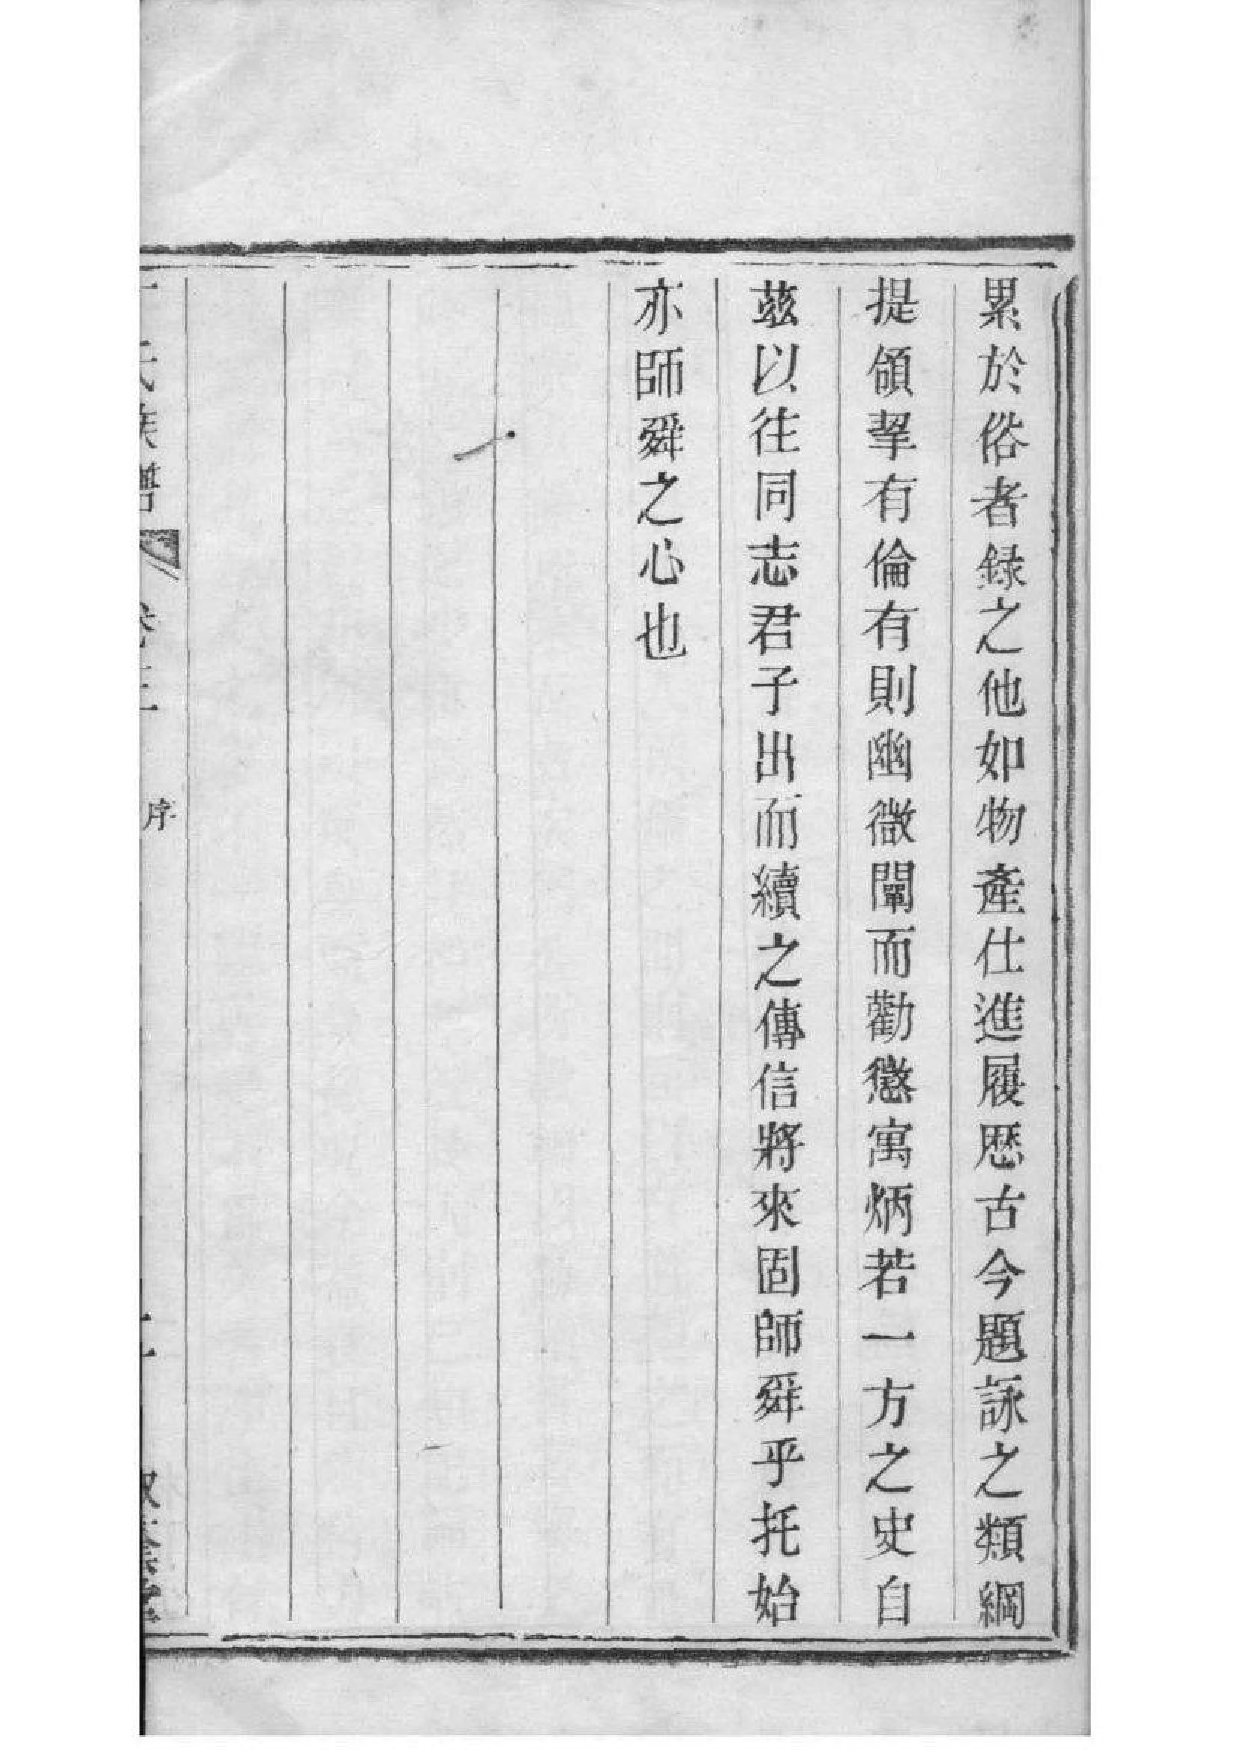 累於俗者録之他如物產仕進履歴古今題詠之類綱
提領挈有倫有則幽微闡而勸懲寓炳若一方之史自
茲以往同志君子出而續之傳信將來固師舜乎托始
亦師舜之心也
氏族譜
卷三
序